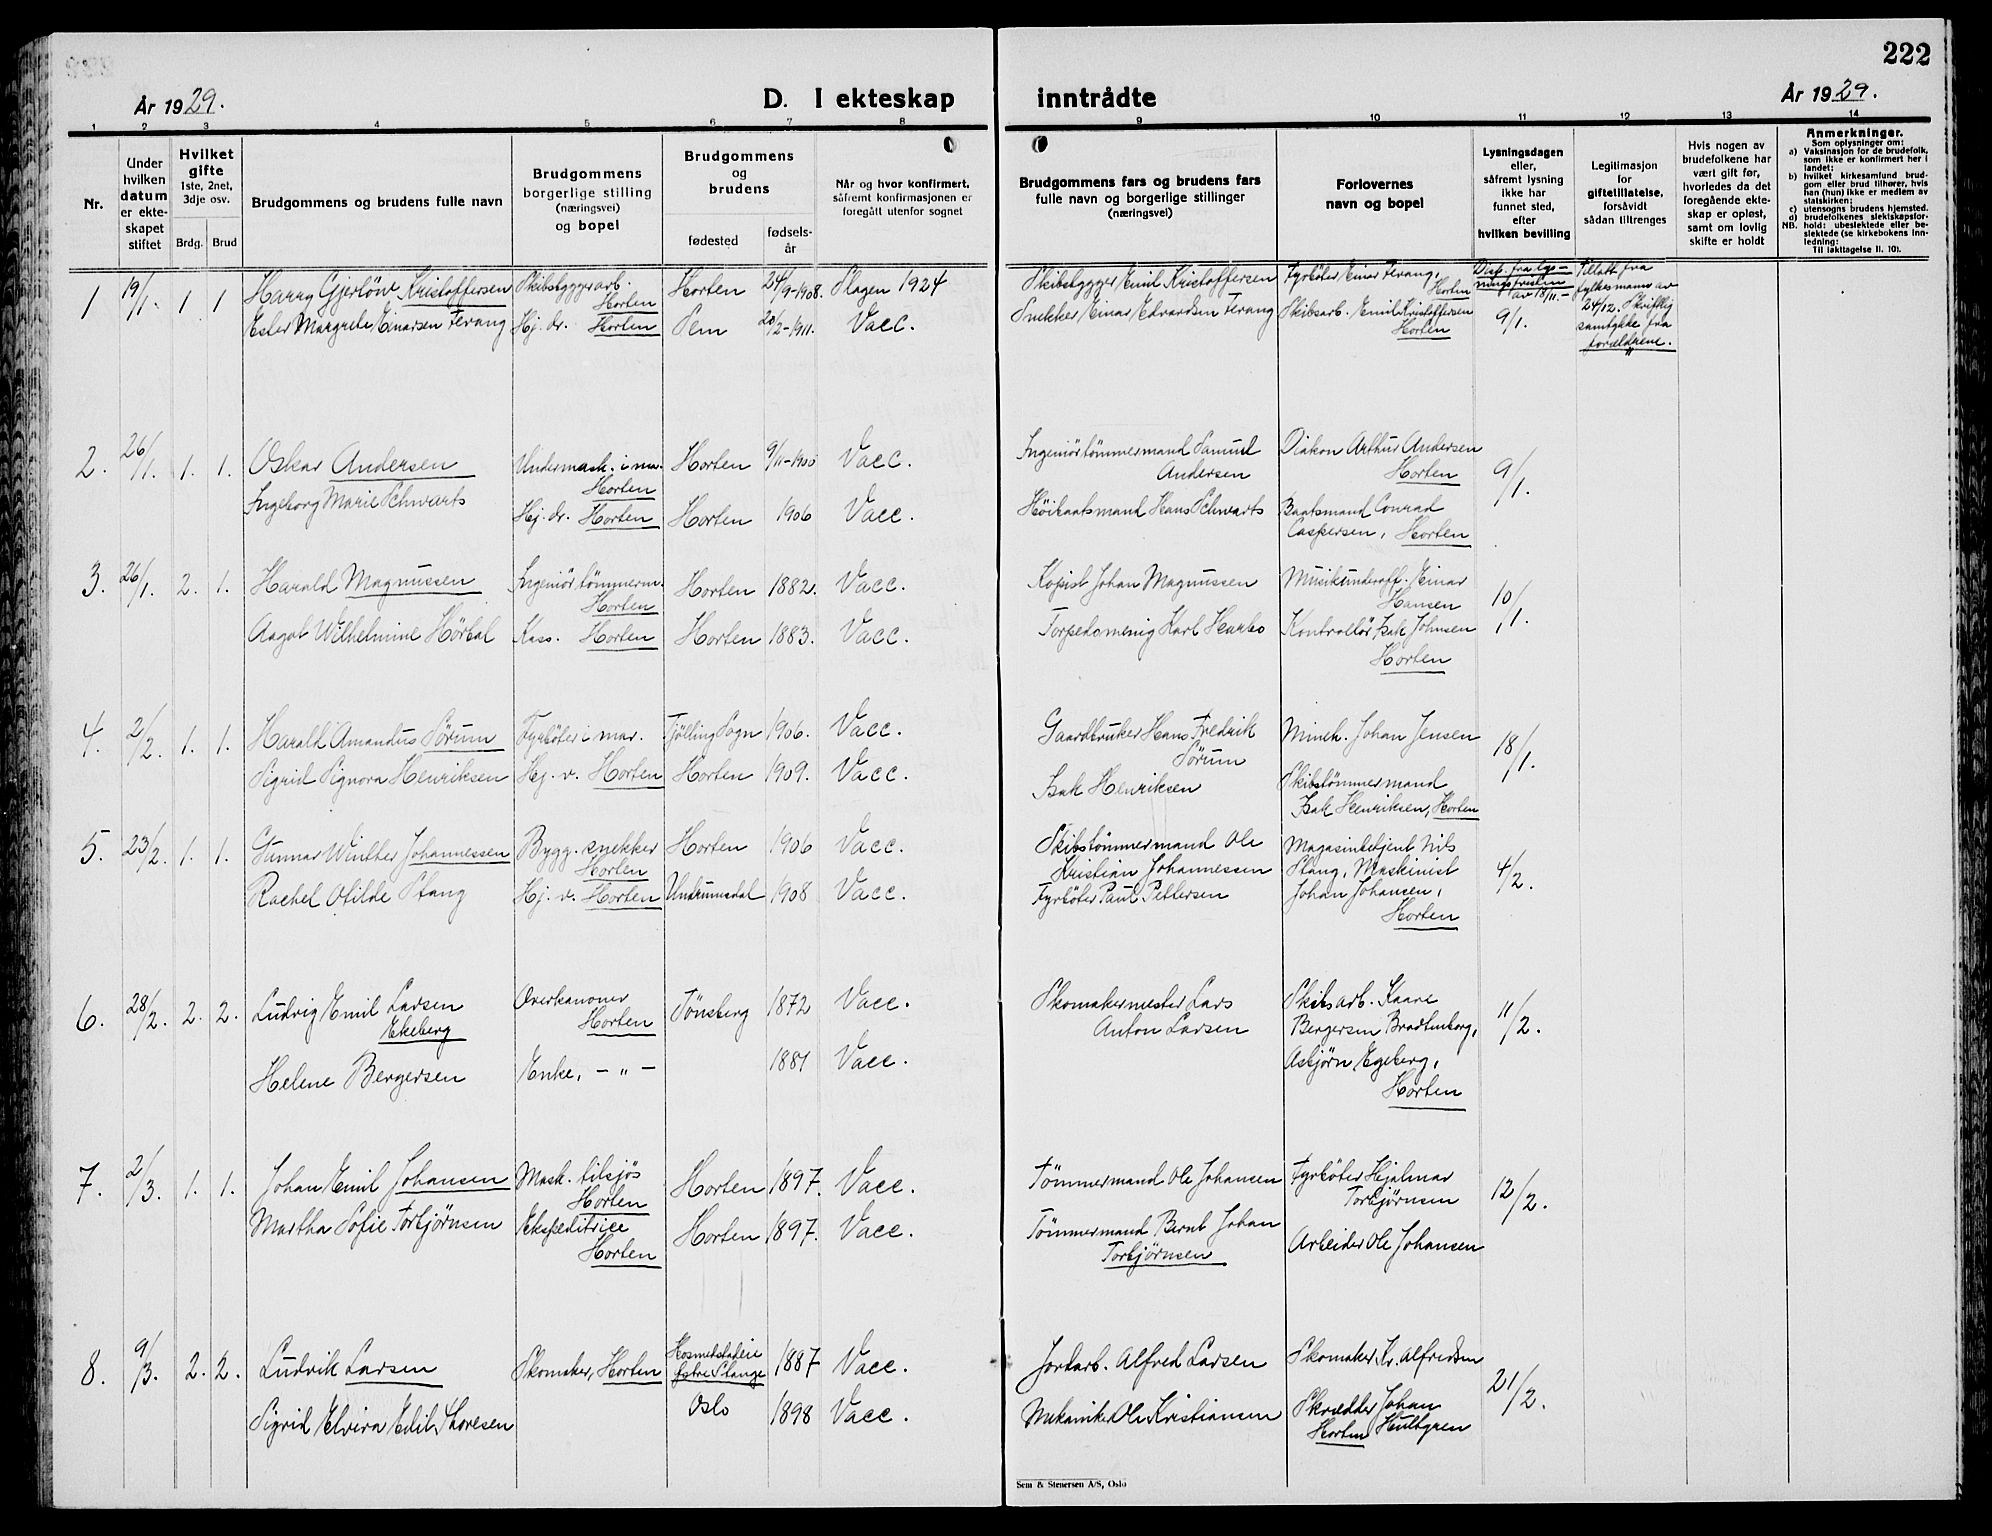 222
År 1929.
D. I ekteskap
inntrådte
År 1929.
1 2 3 4 5 6 7 8 9 10 11 12 13 14
Nr.
Under hvilken datum er ekteskapet stiftet
Hvilket gifte
1ste, 2net, 3dje osv.
Brdg. Brud
Brudgommens og brudens fulle navn
Brudgommens borgerlige stilling (næringsvei) og bopel
Brudgommens og brudens
fødested
fødselsår
Når og hvor konfirmert, såfremt konfirmasjonen er foregått utenfor sognet
Brudgommens fars og brudens fars fulle navn og borgerlige stillinger (næringsvei)
Forlovernes navn og bopel
Lysningsdagen eller, såfremt lysning ikke har funnet sted, efter hvilken bevilling
Legitimasjon for giftetillatelse, forsåvidt sådan tiltrenges
Hvis nogen av brudefolkene har vært gift før, hvorledes da det foregående ekteskap er opløst, samt om lovlig skifte er holdt
Anmerkninger.
Som oplysninger om:
a) Vaksinasjon for de brudefolk, som ikke er konfirmert her i landet:
b) hvilket kirkesamfund brudgom eller brud tilhører, hvis han (hun) ikke er medlem av statskirken:
c) utensogns brudens hjemsted.
d) brudefolkenes slektskapsforhold: ubeslektede eller beslektede (se kirkebokens innledning:
NB. Til iakttagelse II. 10).
1 19/1. 1 1 Harry Gjerlöw Kristoffersen Skibsbyggerarb. Horten Horten 24/9-1908. Slagen 1924 Skibsbygger Emil Kristoffersen Fyrböter Einar Ferang, Horten Disp. fra lysningsfristen av 18/11.- Tillatt fra fylkesmann av 24/12. Skriftlig samtykke fra forældrene.
Ester Margrete Einarsen Ferang Hj. dr. Horten Sem 20/2-1911. Vacc. Snekker Einar Edvardsen Ferang Skibsarb. Emil Kristoffersen Horten 9/1.
2. 26/1. 1. 1. Oskar Andersen Undermask. i mar. Horten Horten 9/11-1900 Vacc. Ingeniörtömmermand Samuel Andersen Diakon Arthur Andersen Horten 9/1.
Ingeborg Marie Schwarts Hj. dr. Horten Horten 1906 Vacc. Höibaatsmand Hans Schwarts Baatsmand Conrad Caspersen, Horten
3. 26/1. 2. 1. Harald Magnussen Ingeniörtömmerm. Horten Horten 1882. Vacc. Kopist Johan Magnussen Musikunderoff. Einar Hansen 10/1.
Aagot Wilhelmine Hörbal Kass. Horten Horten 1883. Vacc. Torpedomenig Karl Kontrollör Isak Johnsen Horten
4. 2/2. 1. 1. Harald Amandus Sörum Fyrböter i mar. Tjölling Sogn 1906. Vacc. Gaardbruker Hans Fredrik Sörum Minek. Johan Jensen 18/1.
Sigrid Signora Henriksen Hj. v. Horten Horten 1909. Vacc. Isak Henriksen Skibstömmermand Isak Henriksen, Horten
5. 23/2. 1. 1. Gunnar Winther Johannessen Bygg. snekker Horten Horten 1906 Vacc. Skibstömmermand Ole Kristian Johannessen Magasinbetjent Nils Stang, Maskinist 4/2.
Rachel Otilde Stang Hj. v. Horten Undrumsdal 1908 Vacc. Fyrböter Paul Pettersen Johan Johansen, Horten
6. 28/2. 2. 2. Ludvig Emil Larsen Ekeberg Overkanoner Horten Tönsberg 1872 Vacc. Skomakermester Lars Anton Larsen Skibsarb. Kaare Bergersen Bradtenborg, 11/2.
Helene Bergersen Enke, - " - 1881 Vacc. Asbjørn Egeberg, Horten
7. 2/3. 1. 1. Johan Emil Johansen Mask. tilsjøs Horten Horten 1897. Vacc. Tömmermand Ole Johansen Fyrböter Hjalmar Torbjørnsen 12/2.
Martha Sofie Torbjørnsen Ekspeditrice Horten Horten 1897. Vacc. Tömmermand Bernt Johan Torbjørnsen Arbeider Ole Johansen
8. 9/3. 2. 2. Ludvik Larsen Skomaker, Horten Stange 1887 Vacc. Jordarb. Alfred Larsen Skomaker Kr. Alfredsen 21/2.
Sigrid Elvira Edil. Thoresen Oslo 1898 Vacc. Mekaniker Ole Kristiansen Skrædder Johan Hultgren Horten
Sem & Stenersen A/S, Oslo